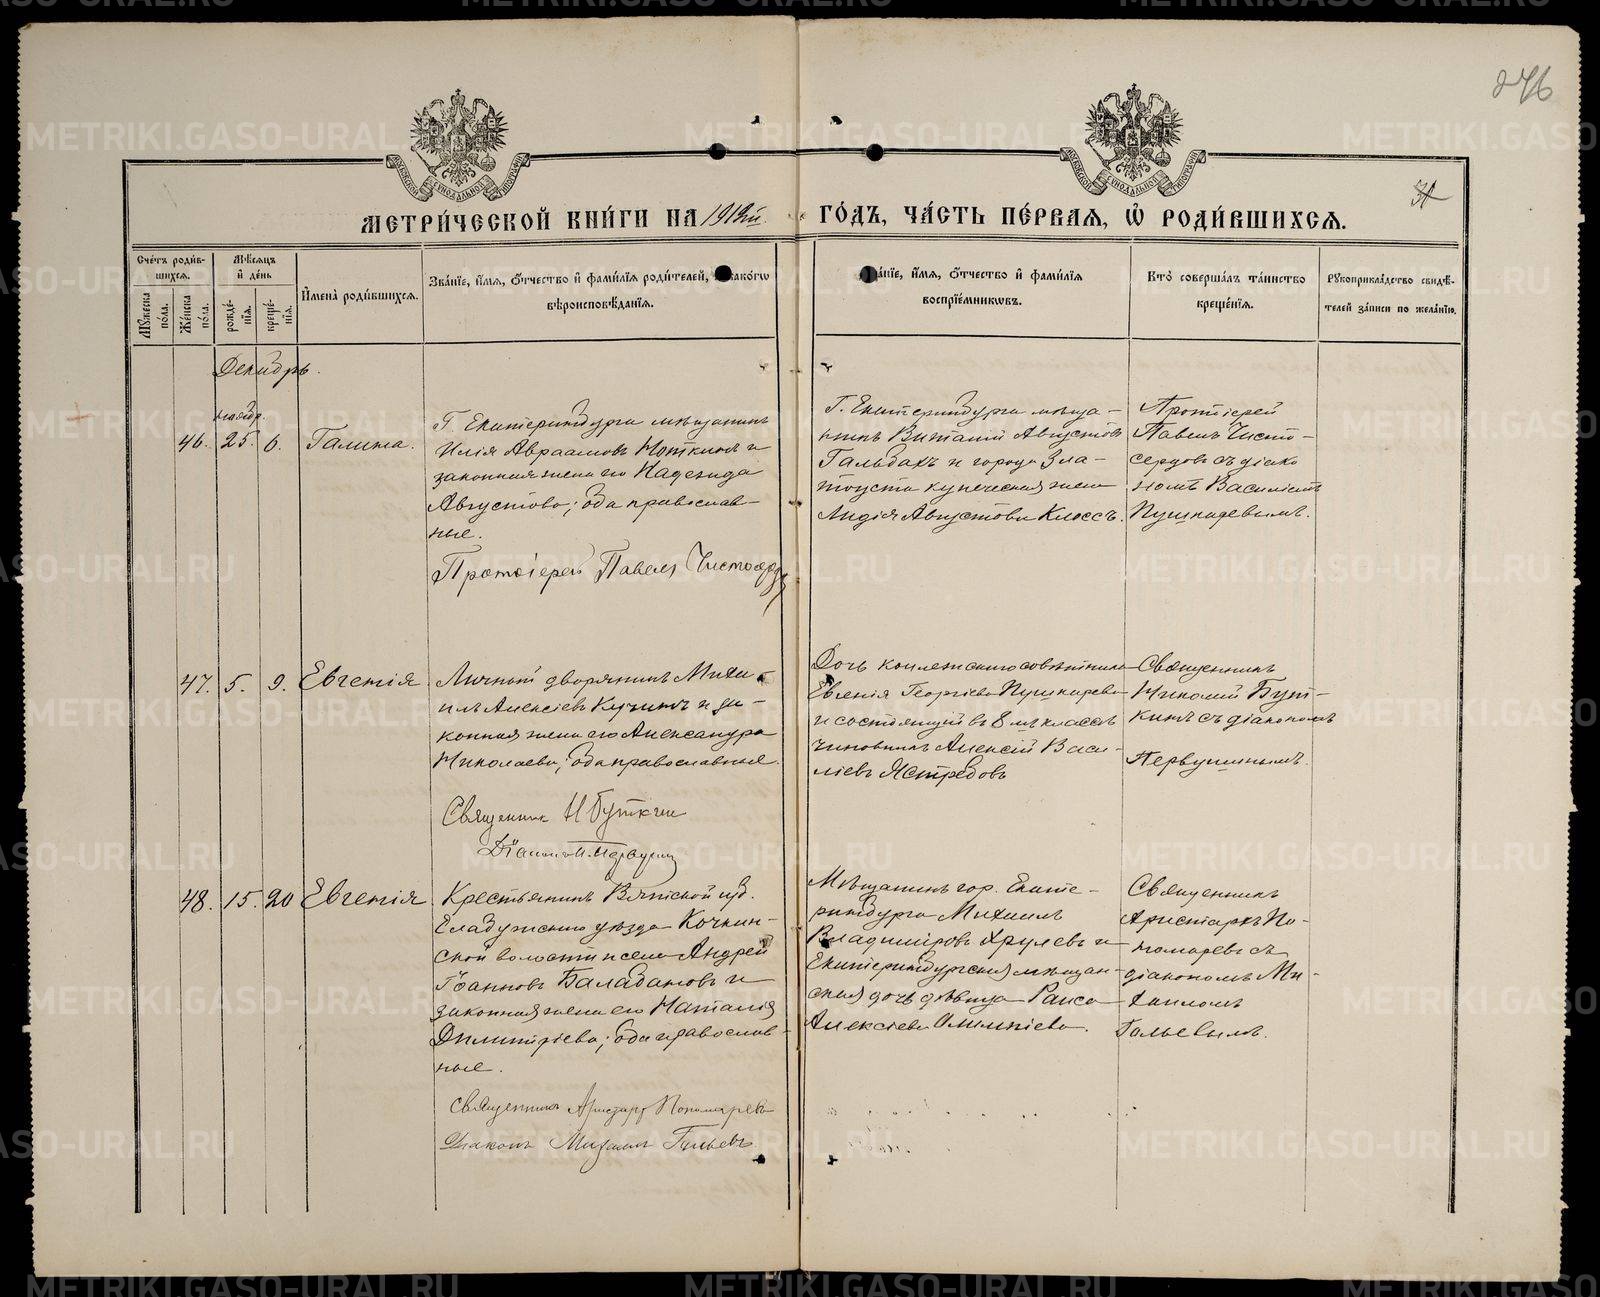 276
31
МЕТРИ́ЧЕСКОЙ КНИ́ГИ НА 1912й ГО́ДЪ, ЧА́СТЬ ПЕ́РВАЯ, Ѡ҆ РОДИ́ВШИХСЯ.
Сче́тъ роди́в-
шихся.
Мѣсяцъ
и҆ де́нь
Мꙋжеска по́ла.
Же́нска по́ла.
рожде́-
нїя.
креще́-
нїя.
И҆мена̀ роди́вшихся.
Зва́нїе, и҆́мя, ѻ҆́тчество и҆ фами́лїя роди́телей, и҆ како́гѡ
вѣроисповѣ́данїя.
Зва́нїе, и҆́мя, ѻ҆́тчество и҆ фами́лїя
воспрїе́мникѡвъ.
Кто̀ соверша́лъ та́инство
креще́нїя.
Рꙋкоприкла́дство свидѣ́-
телей за́писи по жела́нїю.
Декабрь.
ноябр.
46. 25. 6. Галина.
Г. Екатеринбурга мѣщанинъ
Илія Авраамовъ Ноткинъ и
законная жена его Надежда
Августова; оба православ-
ные.
Протоіерей Павелъ Чистосердов
Г. Екатеринбурга мѣща-
нинъ Виталій Августовъ
Гальбахъ и города Зла-
тоуста купеческая жена
Лидія Августова Клоссъ.
Протоіерей
Павелъ Чисто-
сердовъ съ діако
номъ Василіемъ
Пушкаревымъ.
47. 5. 9. Евгенія
Личный дворянинъ Миха-
илъ Алексіевъ Кучинъ и за-
конная жена его Александра
Николаева; оба православные.
Священникъ Н Буткин
Діаконъ Н. Первушин
Дочь коллежскаго совѣтника
Евгенія Георгіева Пушкарева
и состоящій въ 8 мъ классѣ
чиновникъ Алексій Васи-
ліевъ Ястребовъ
Священникъ
Николай Бут-
кинъ съ діакономъ
Первушинымъ.
48. 15. 20 Евгенія
Крестьянинъ Вятской губ.
Елабужскаго уѣзда Кочкин-
ской волости и села Андрей
Іоанновъ Балабановъ и
законная жена его Наталія
Димитріева; оба православ-
ные.
Священникъ Аристархъ Пономаревъ
Діаконъ Михаилъ Гальевъ
Мѣщанинъ гор. Екате-
ринбурга Михаилъ
Владиміровъ Хрулевъ и
Екатеринбургская мѣщан-
ская дочь дѣвица Раиса
Алексіева Олимпіева.
Священникъ
Аристархъ По-
номаревъ съ
діакономъ Ми-
хаиломъ
Гальевымъ.
METRIKI.GASO-URAL.RU